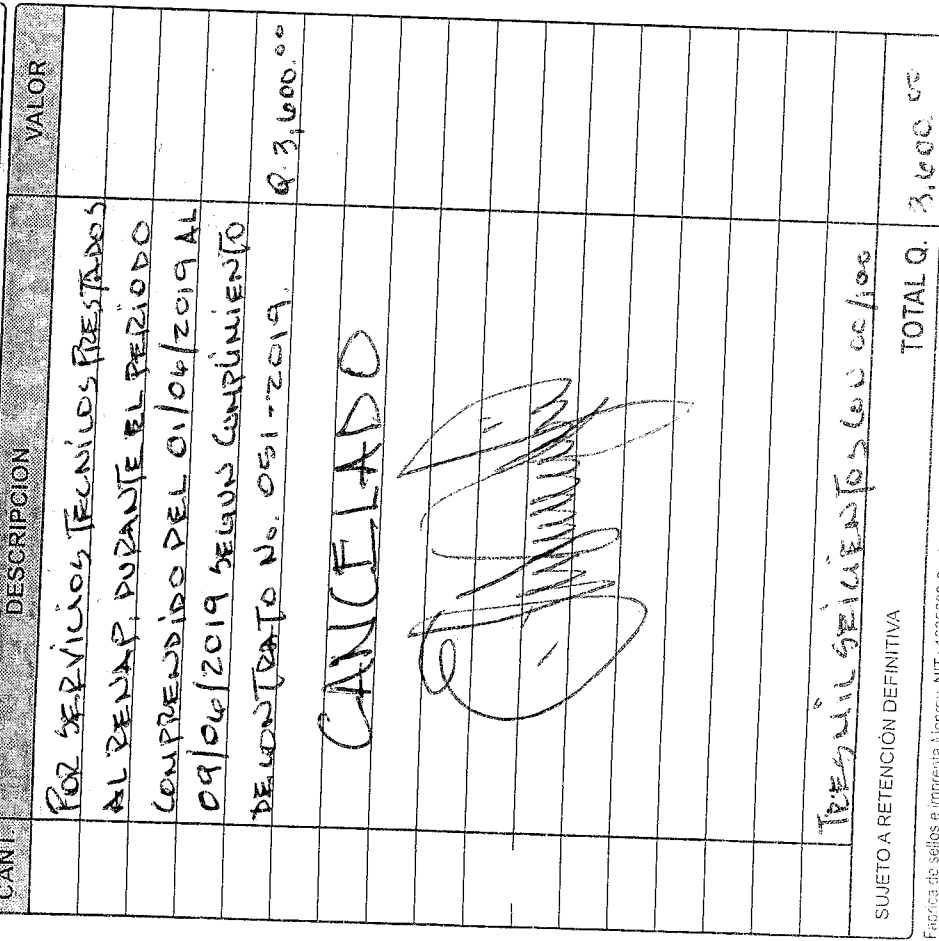 CANT. DESCRIPCION VALOR
POR SERVICIOS TECNICOS PRESTADOS
AL RENAP, DURANTE EL PERIODO
COMPRENDIDO DEL 01/06/2019 AL
09/06/2019 SEGUN CUMPLIMIENTO
DE CONTRATO No. 051-2019. Q. 3,600.00
CANCELADO
TRES MIL SEICIENTOS CON 00/100
SUJETO A RETENCIÓN DEFINITIVA
TOTAL Q. 3,600.00
Fabrica de sellos e imprenta NIT.